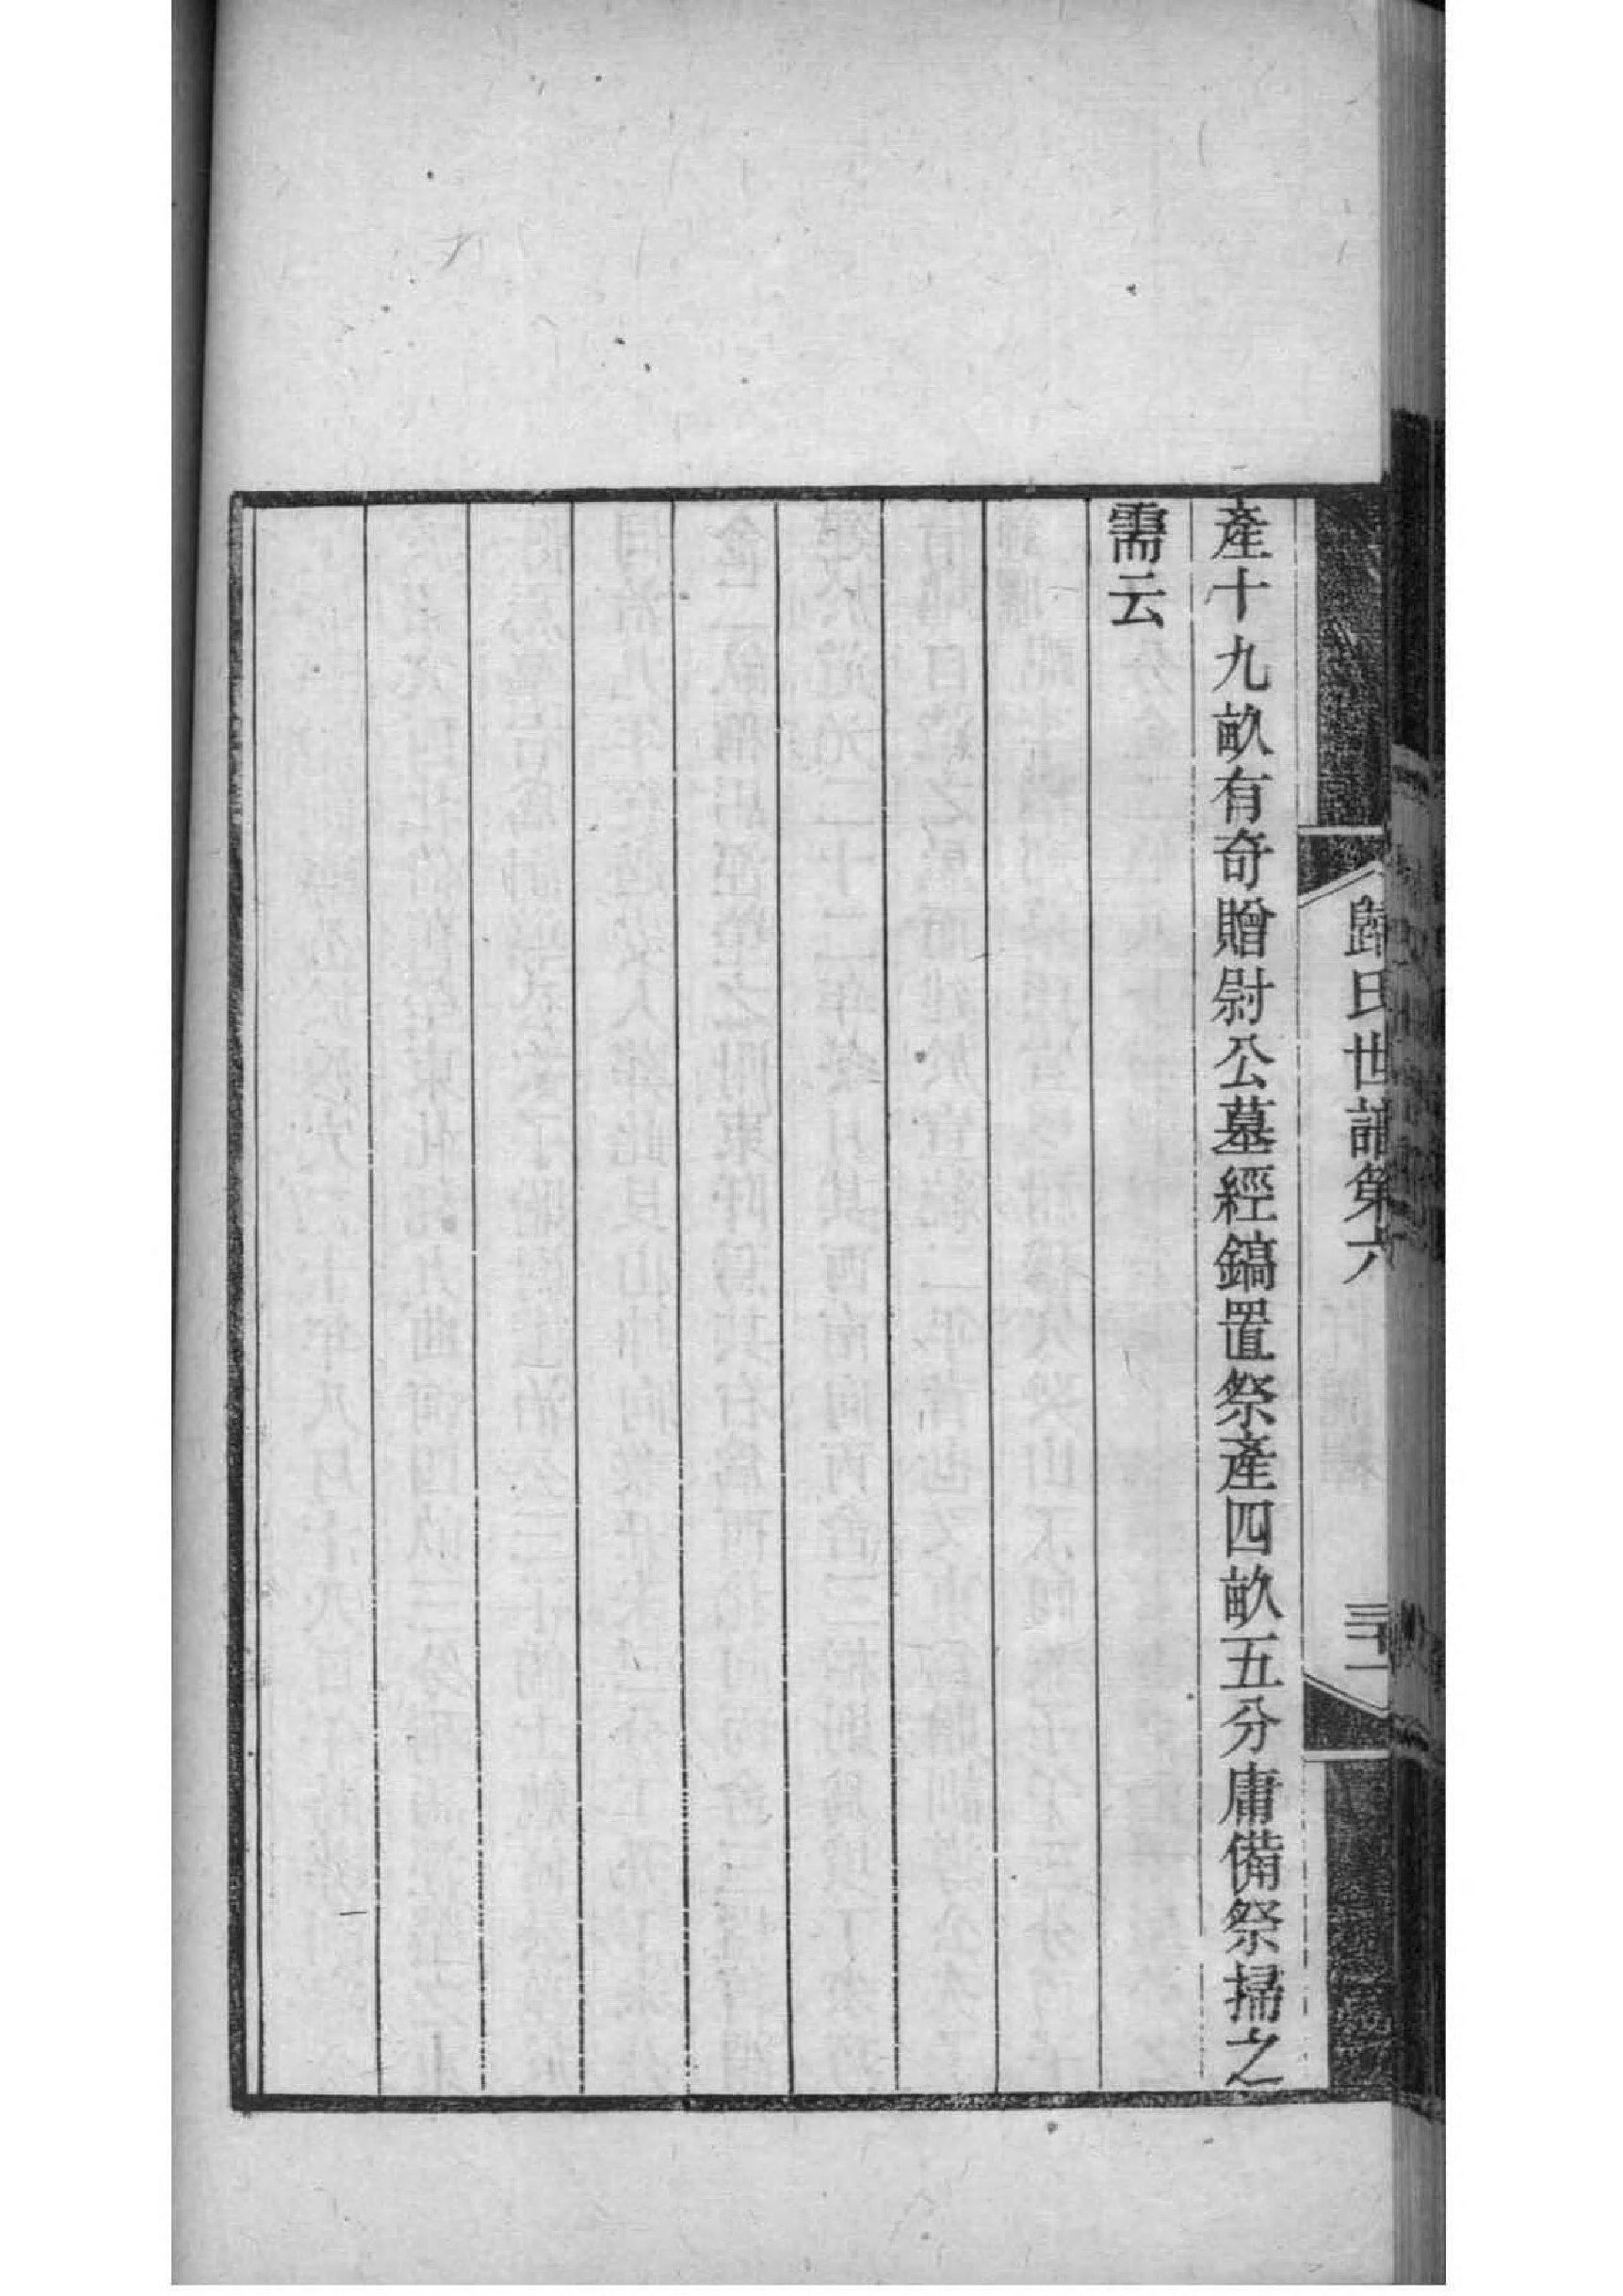 歸氏世譜第六
三十一
產十九畝有奇贈尉公墓經鎬置祭產四畝五分庸備祭掃之
需云